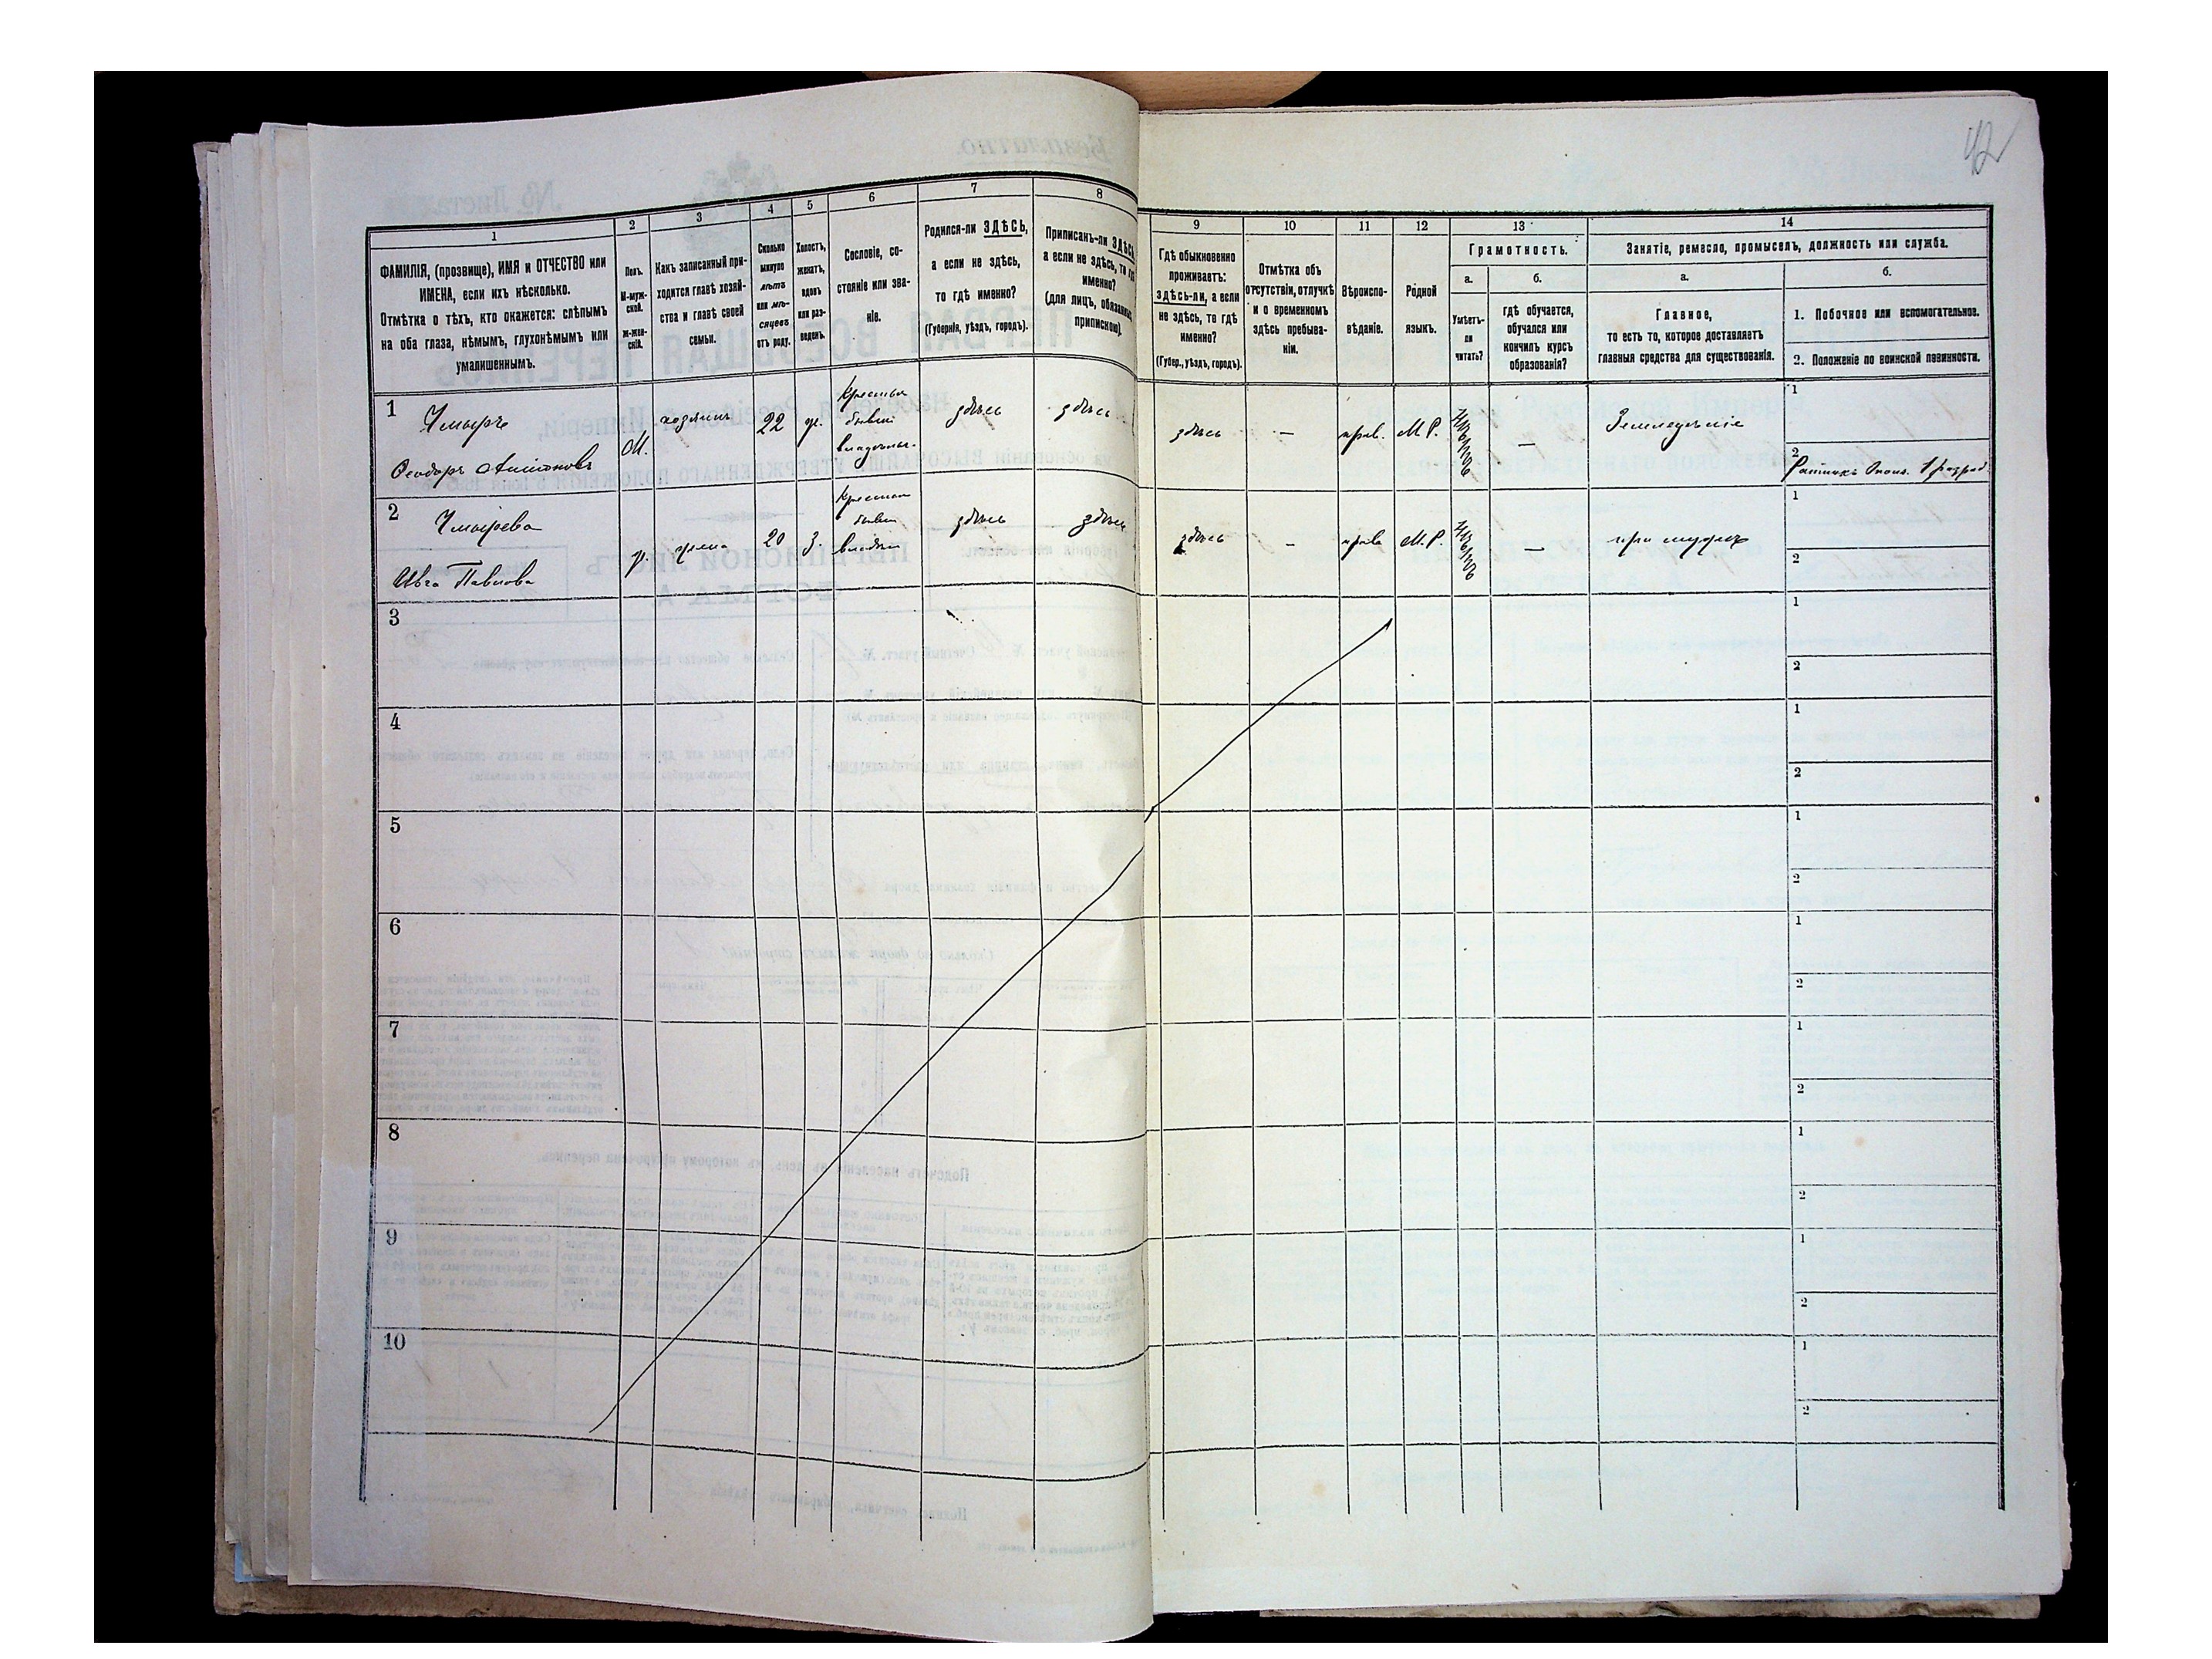 42
1
2
3
4
5
6
7
8
9
10
11
12
13
14
ФАМИЛІЯ, (прозвище), ИМЯ и ОТЧЕСТВО или
ИМЕНА, если ихъ нѣсколько.
Отмѣтка о тѣхъ, кто окажется: слѣпымъ
на оба глаза, нѣмымъ, глухонѣмымъ или
умалишеннымъ.
Полъ.
М-муж-
ской.
Ж-жен-
скій.
Какъ записанный при-
ходится главѣ хозяй-
ства и главѣ своей
семьи.
Сколько
минуло
лѣтъ
или мѣ-
сяцевъ
отъ роду.
Холостъ,
женатъ,
вдовъ
или раз-
веденъ.
Сословіе, со-
стояніе или зва-
ніе.
Родился-ли ЗДѢСЬ,
а если не здѣсь,
то гдѣ именно?
(Губернія, уѣздъ, городъ).
Приписанъ-ли ЗДѢСЬ,
а если не здѣсь, то гдѣ
именно?
(для лицъ, обязанныхъ
припискою).
Гдѣ обыкновенно
проживаетъ:
здѣсь-ли, а если
не здѣсь, то гдѣ
именно?
(Губер., уѣздъ, городъ).
Отмѣтка объ
отсутствіи, отлучкѣ
и о временномъ
здѣсь пребыва-
ніи.
Вѣроиспо-
вѣданіе.
Родной
языкъ.
Грамотность.
а.
Умѣетъ-
ли
читать?
б.
гдѣ обучается,
обучался или
кончилъ курсъ
образованія?
Занятіе, ремесло, промыселъ, должность или служба.
а.
Главное,
то есть то, которое доставляетъ
главныя средства для существованія.
б.
1. Побочное или вспомогательное.
2. Положеніе по воинской повинности.
1
Чмырь
Ѳеодоръ Антоновъ
М.
хозяинъ
22
ж.
Крестьян
бывші
владѣльч.
здѣсь
здѣсь
здѣсь
—
прав.
М.Р.
нѣтъ
—
Земледѣліе
1
2
Ратникъ Опол. 1 разряд.
2
Чмырева
Павлова
ж.
жена
20
з.
Крестьян
бывш
владѣл
здѣсь
здѣсь
здѣсь
—
прав
М.Р.
нѣтъ
—
при мужѣ
1
2
3
1
2
4
1
2
5
1
2
6
1
2
7
1
2
8
1
2
9
1
2
10
1
2